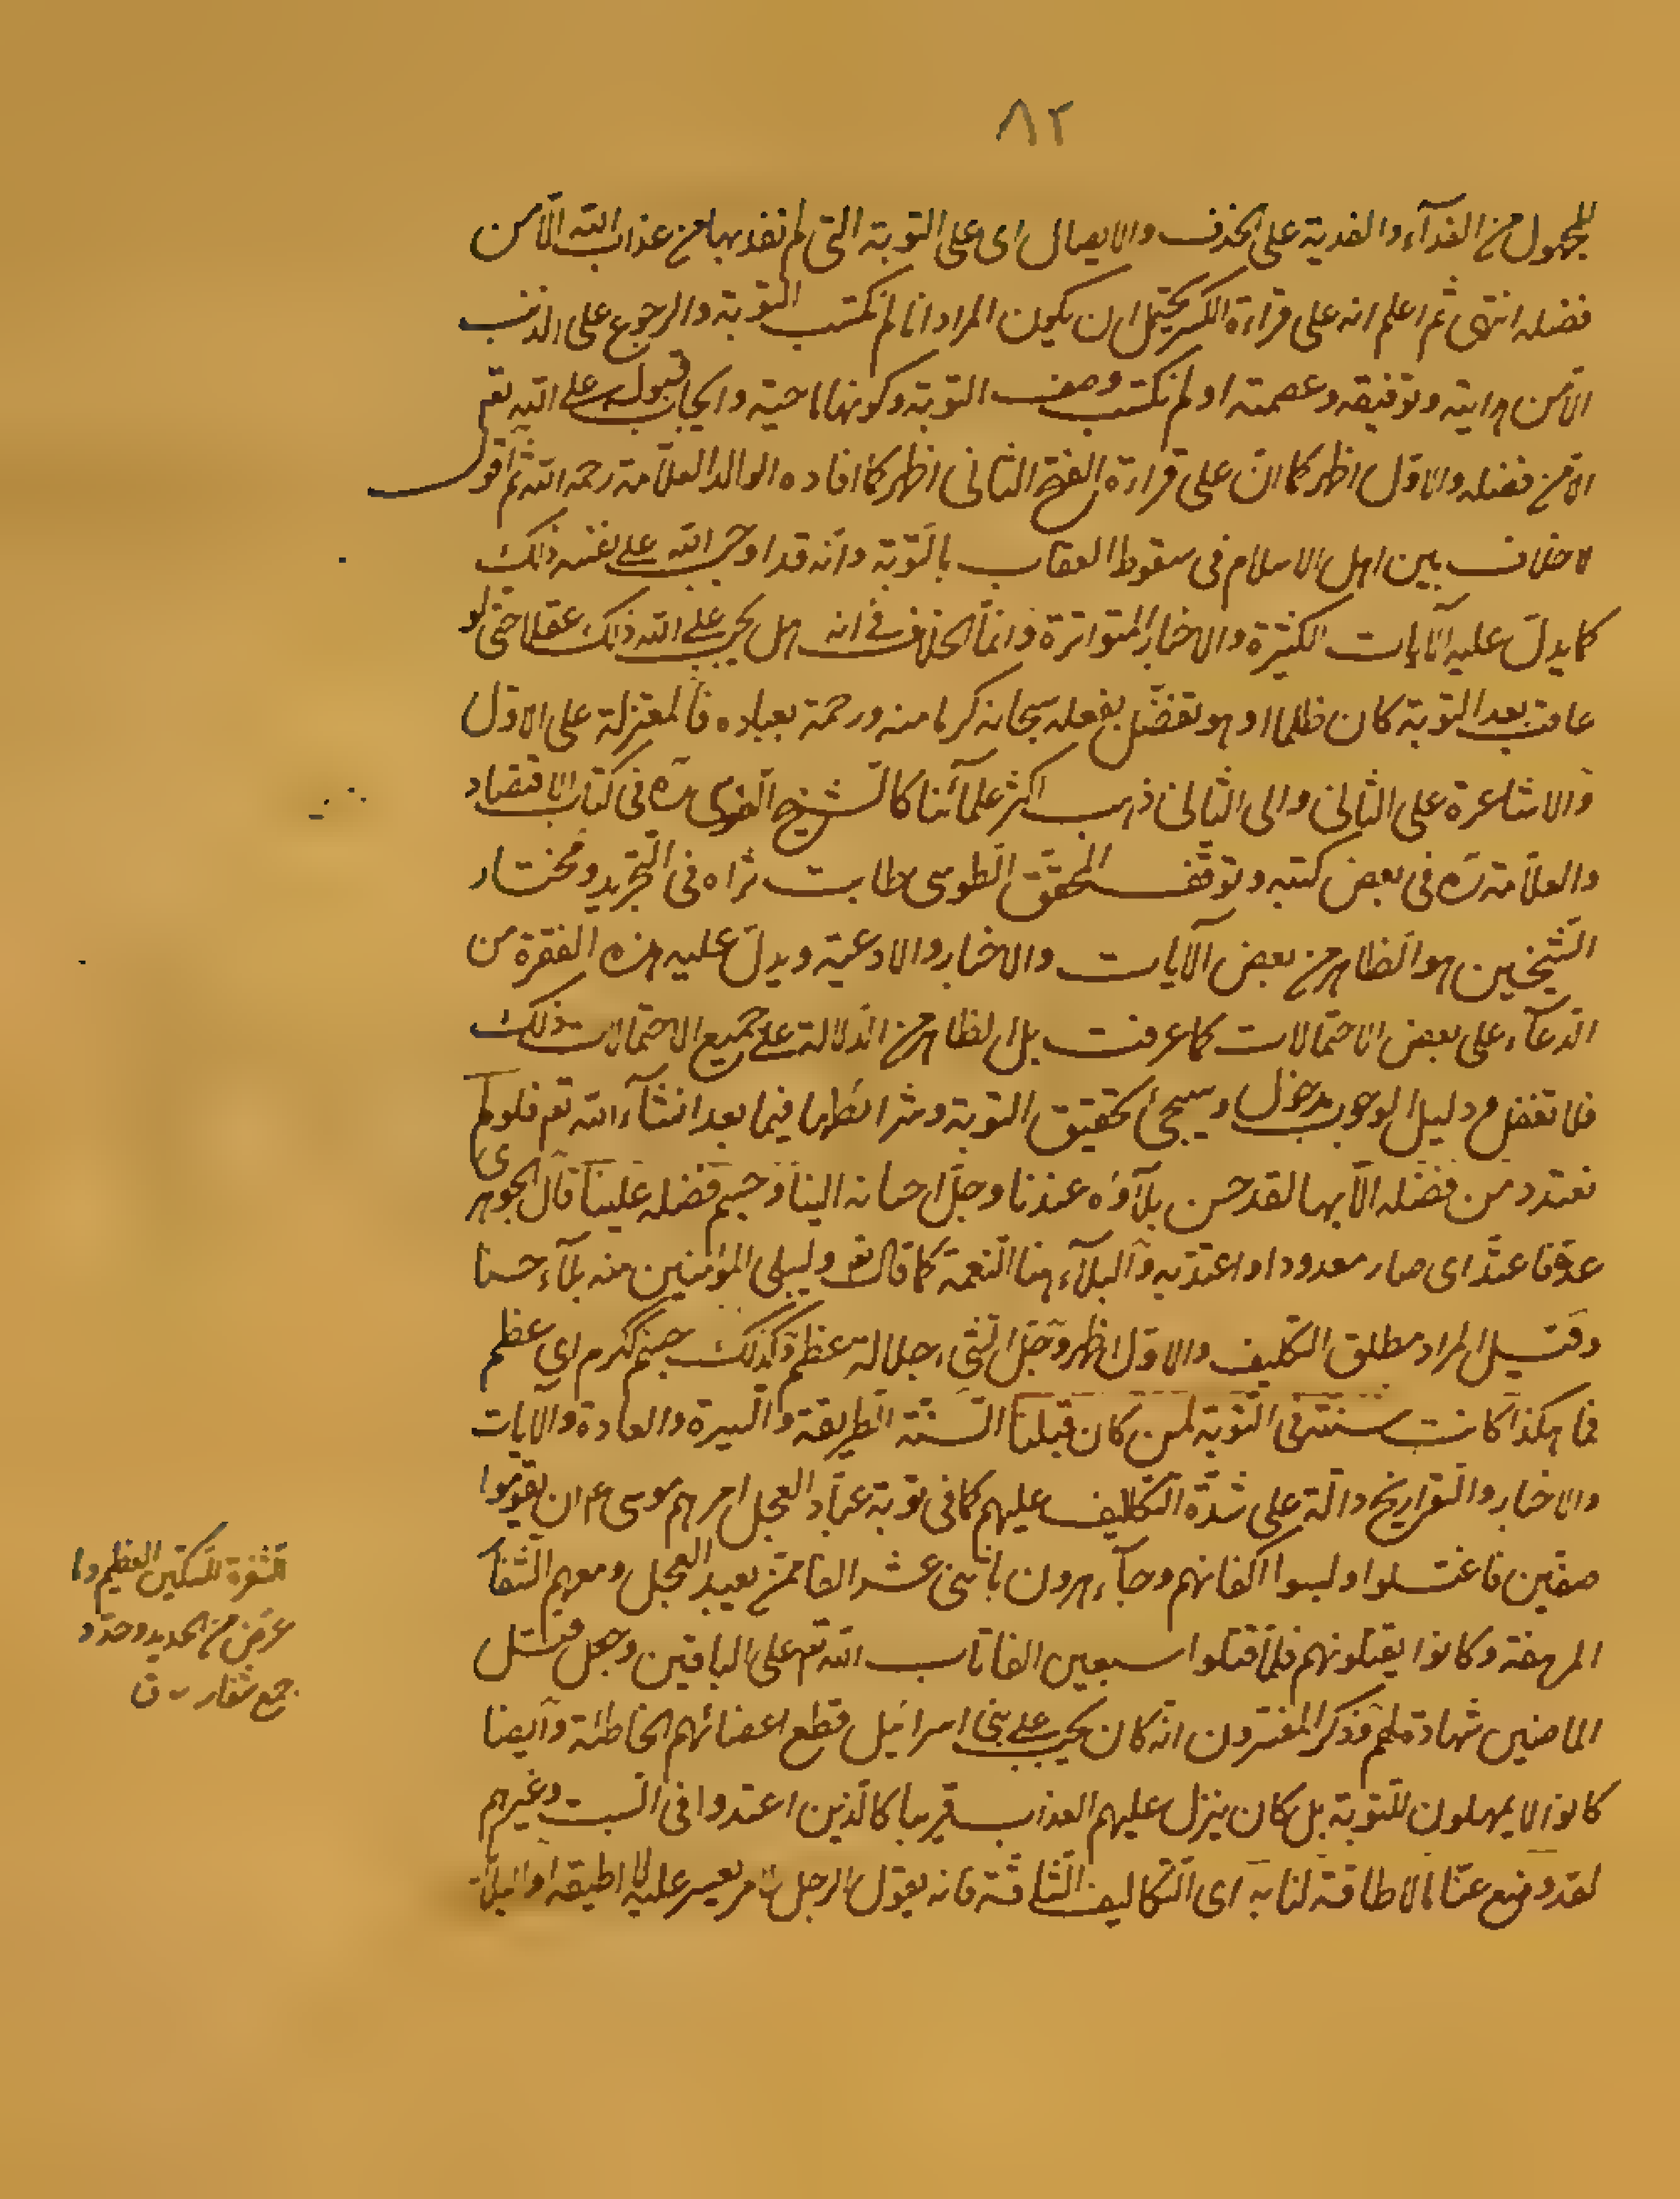 ٨٢
للمجهول من الفدآء والفدية على الحذف والايصال اى على التوبة التى لم نفد بها من عذاب الله الّا من
فضله انتهى ثم اعلم انه على قراءة الكسر يحتمل ان يكون المراد انا لم نكتسب التوبة والرجوع على الذنب
الّا من هدايته وتوفيقه وعصمته او لم نكتسب وصف التوبة وكونها ماحية وايجاب قبوله على الله تعم
الّا من فضله والاوّل اظهر كما انّ على قراءة الفتح الثانى اظهر كما افاده الوالد العلّامة رحمه الله ثم اقول
لا خلاف بين اهل الاسلام فى سقوط العقاب بالتّوبة وانّه قد اوجب الله على نفسه ذلك
كما يدلّ عليه الآيات الكثيرة والاخبار المتواترة وانّما الخلاف فى انه هل يجب على الله ذلك عقلا حتى لو
عاقب بعد التوبة كان ظلما او هو تفضّل يفعله سبحانه كرما منه ورحمة بعباده فالمعتزلة على الاوّل
والاشاعرة على الثانى والى الثانى ذهب اكثر علمآئنا كالشّيخ الطوسى ره فى كتاب الاقتصاد
والعلّامة ره فى بعض كتبه وتوقّف المحقّق الطوسى طاب ثراه فى التجريد ومختار
الشّيخين هو الظاهر من بعض الآيات والاخبار والادعية ويدلّ عليه هذه الفقرة من
الدعآء على بعض الاحتمالات كما عرفت بل الظاهر من الدلالة على جميع الاحتمالات ذلك
فلا تغفل ودليل الوجوب مدخول وسيجئ تحقيق التوبة وشرائطها فيما بعد انشآء الله تعم فلو لم
نعتدد من فضله الّا بها لقد حسن بلآؤه عندنا وجلّ احسانه الينا وجسم فضله علينا قال الجوهرى
عدّه فاعتدّ اى صار معدودا واعتدّ به والبلآء هنا النّعمة كما قال تعم وليبلى المؤمنين منه بلآء حسنا
وقيل المراد مطلق التكليف والاوّل اظهر وجلّ الشّئ جلالة عظم وكذلك جسم ككرم اى عظم
فما هكذا كانت سنّته فى التّوبة لمن كان قبلنا السّنّة الطريقة والسّيرة والعادة والآيات
والاخبار والتواريخ دالّة على شدّة التكليف عليهم كما فى توبة عبّاد العجل امرهم موسى ع ان يقوموا
صفّين فاغتسلوا ولبسوا اكفانهم وجآء هرون باثنى عشر الفا ممن لم يعبد العجل ومعهم الشّفار
المرهفة وكانوا يقتلونهم فلمّا قتلوا سبعين الفا تاب الله تعم على الباقين وجعل قتل
الماضين شهادة لهم وذكر المفسّرون انّه كان يجب على بنى اسرائيل قطع اعضائهم الخاطئة وايضا
كانوا لا يمهلون للتّوبة بل كان ينزل عليهم العذاب قريبا كالّذين اعتدوا فى السّبت وغيرهم
لقد وضع عنّا ما لا طاقة لنا به اى التّكاليف الشّاقّة فانه يقول الرجل لامر يعسر عليه لا اطيقه او البلايا
الشفرة للسّكين العظيم وما
عرّض من الحديد وحدّد
جمع شفار ق